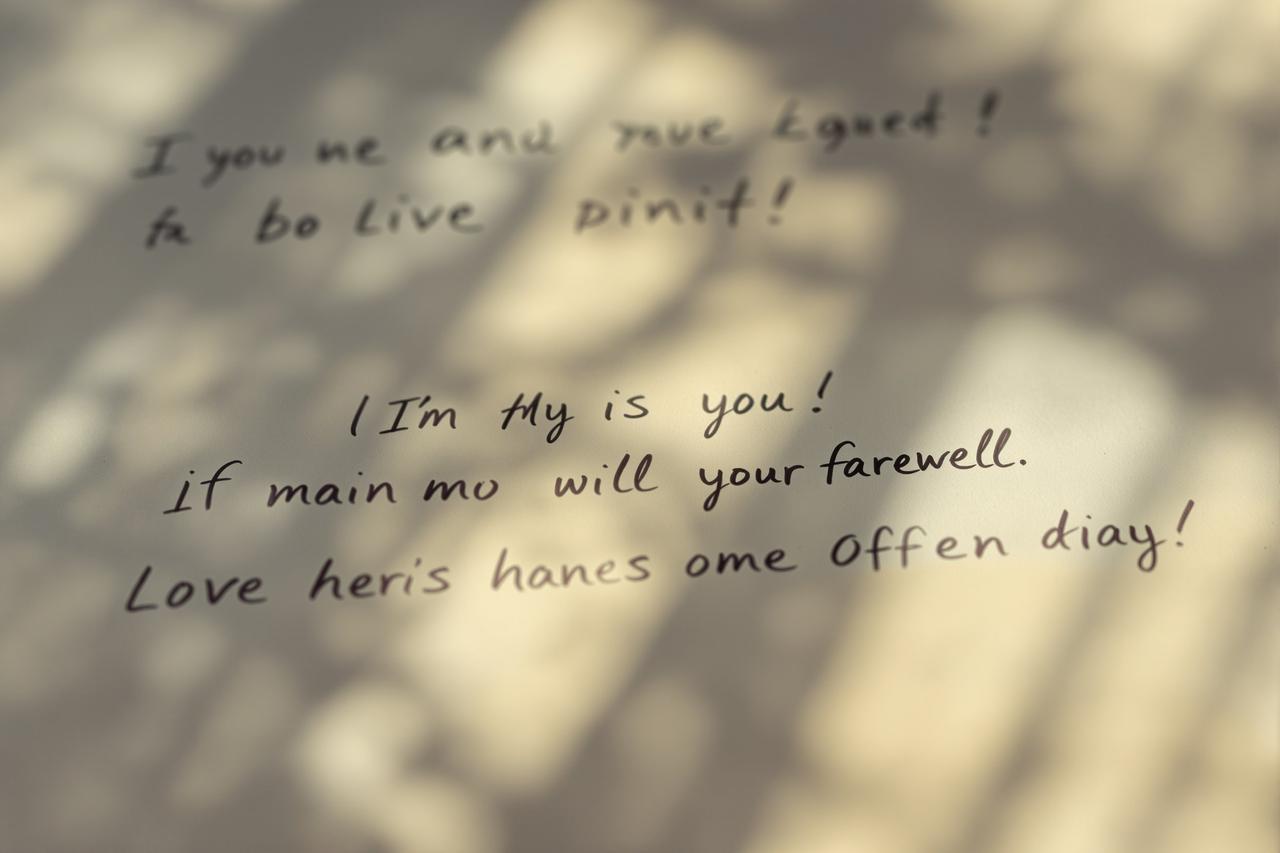 I you ne and rove Egued!
fa bo Live pinit!
(I'm My is you!
if main mo will your farewell.
Love heri's hanes ome Offen diay!